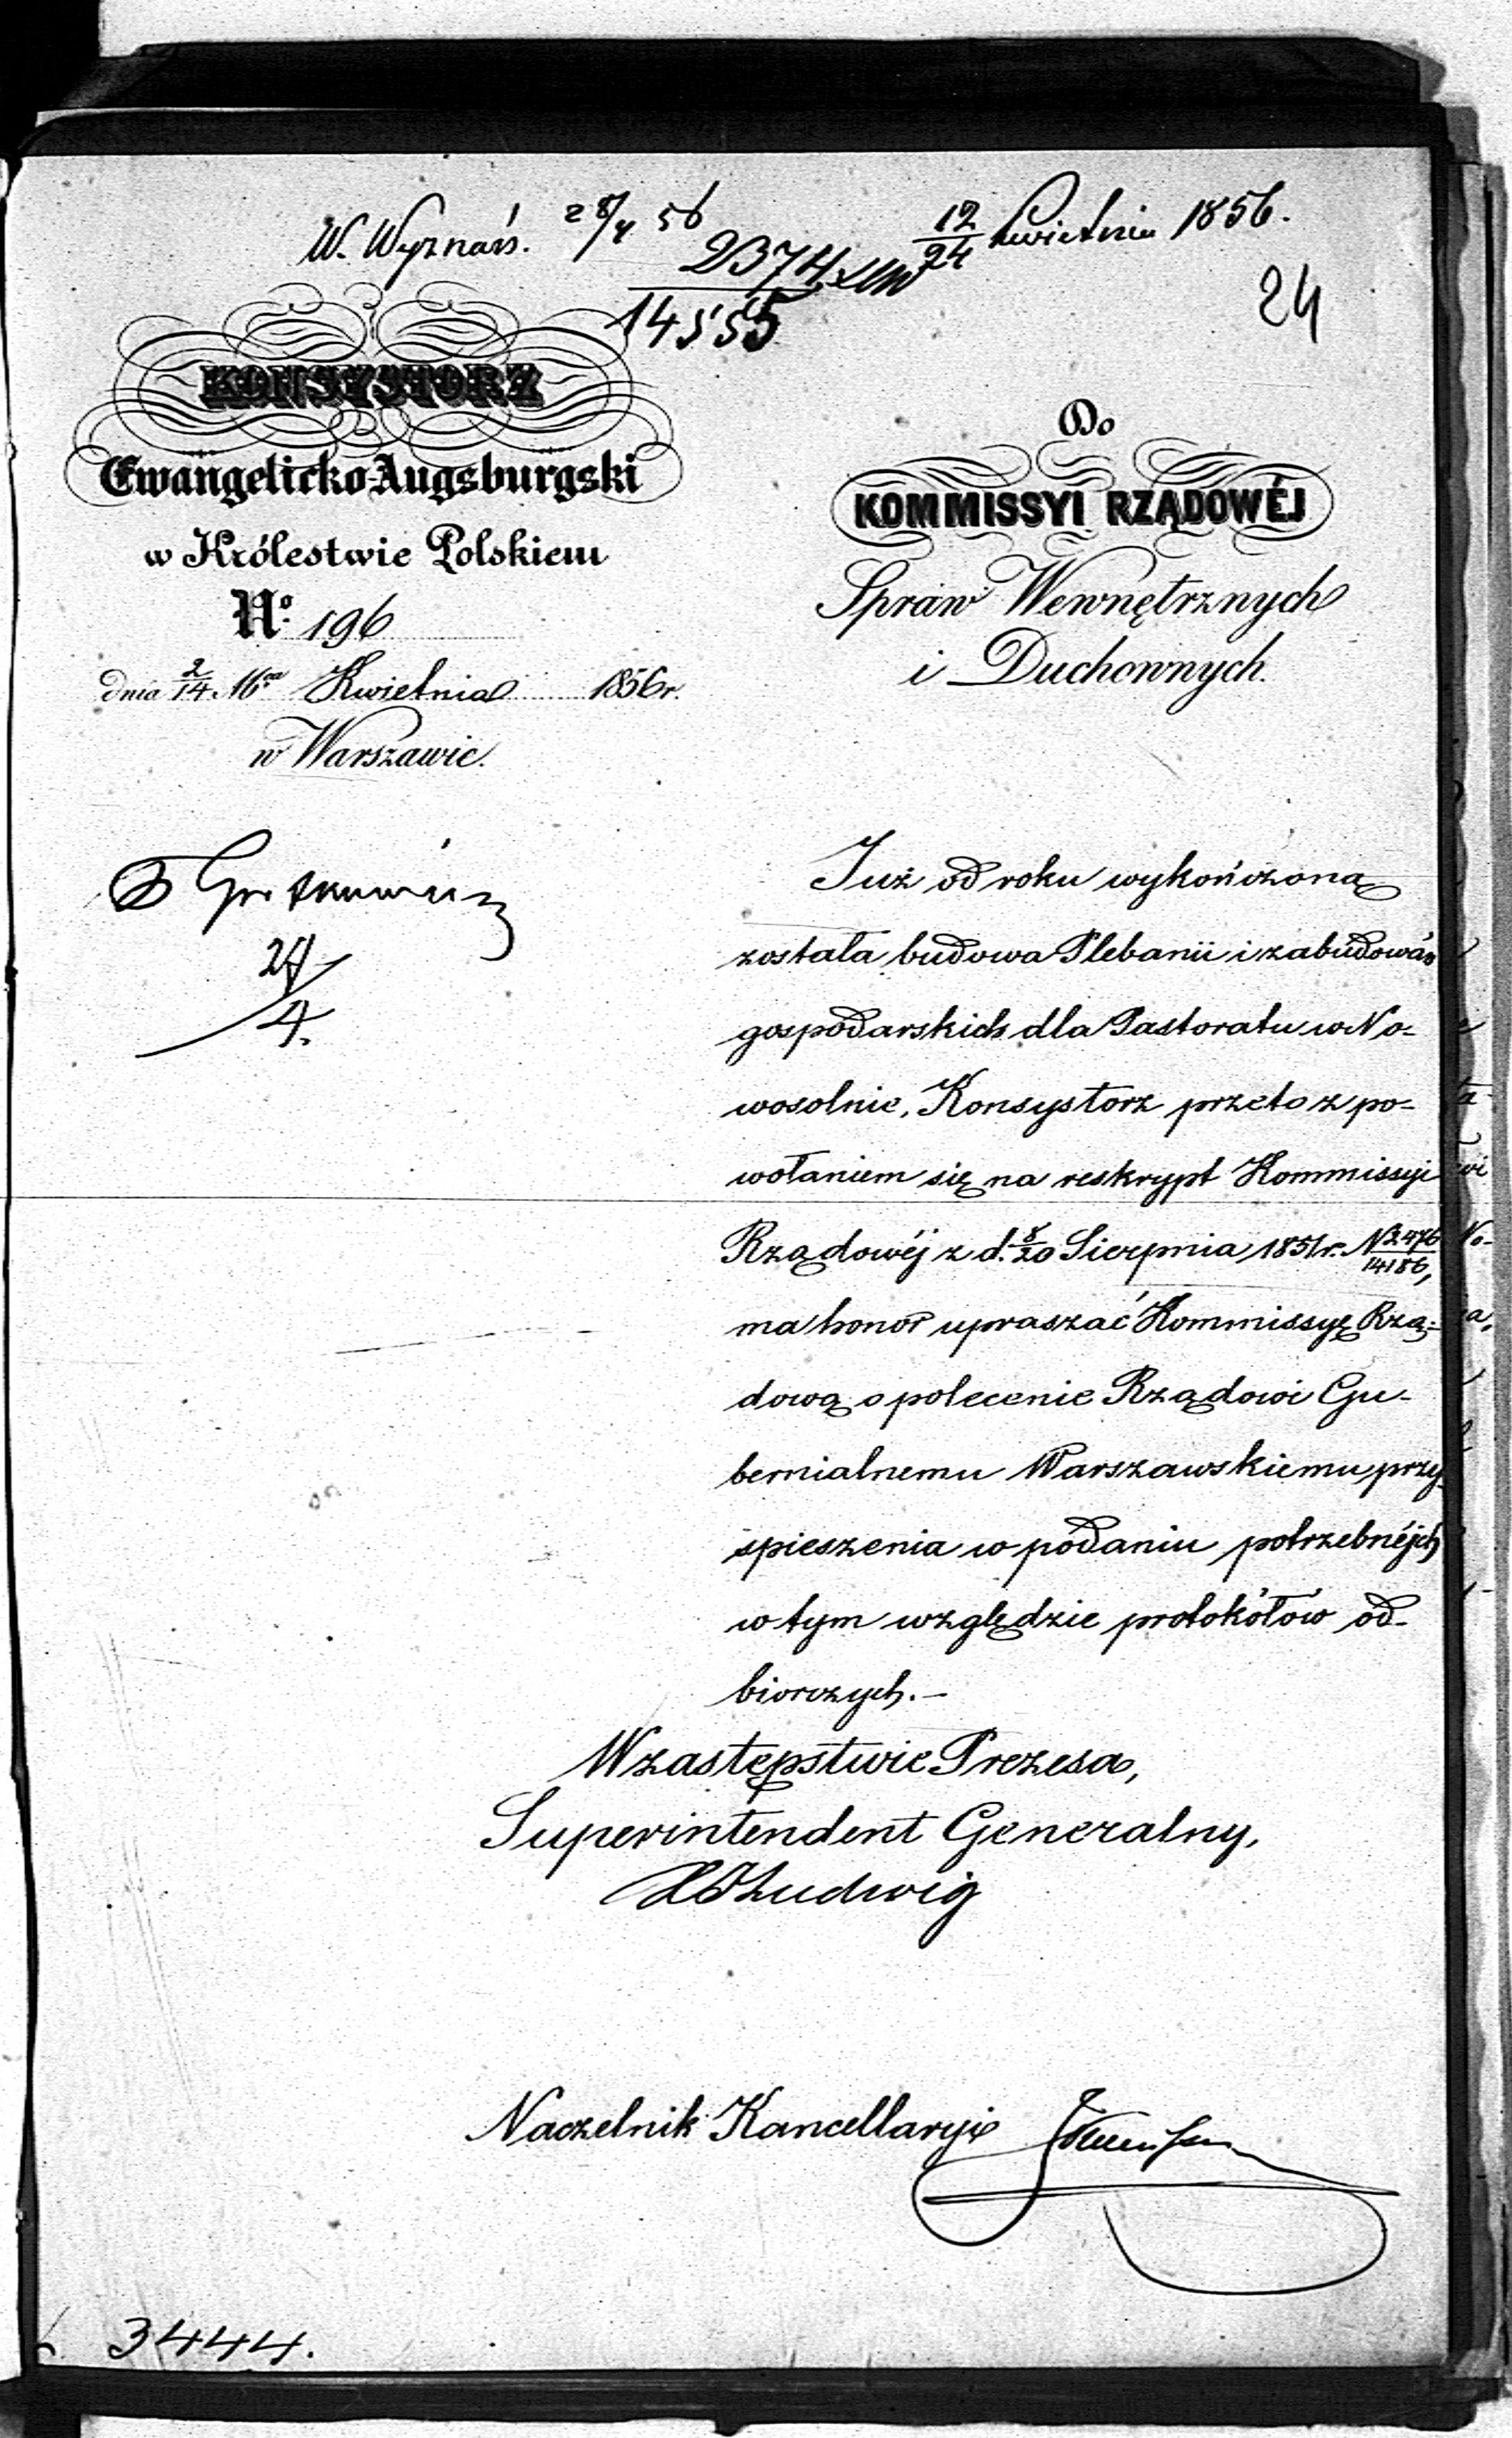 W. Wyznań. 28/4 56
12/24 Kwietnia 1856.
2374
14555
24
KONSYSTORZ
Ewangelicko-Augsburgski
w Królestwie Polskiem
No. 196
dnia 2/14 Mca Kwietnia 1856 r.
w Warszawie.
Do
KOMMISSYI RZĄDOWÉJ
Spraw Wewnętrznych
i Duchownych.
27
4.
Już od roku wykończoną
została budowa Plebanii i zabudowań
gospodarskich dla Pastoratu w No-
wosolnie, Konsystorz przeto z po-
wołaniem się na reskrypt Kommissyi
Rządowéj z d. 8/20 Sierpnia 1851 r. N 2476/14186,
ma honor upraszać Kommissyę Rzą-
dową o polecenie Rządowi Gu-
bernialnemu Warszawskiemu przy-
spieszenia w podaniu potrzebnéjch
w tym względzie protokółów od-
biorczych.-
W zastępstwie Prezesa,
Superintendent Generalny,
Ludwig
Naczelnik Kancellaryi
3444.